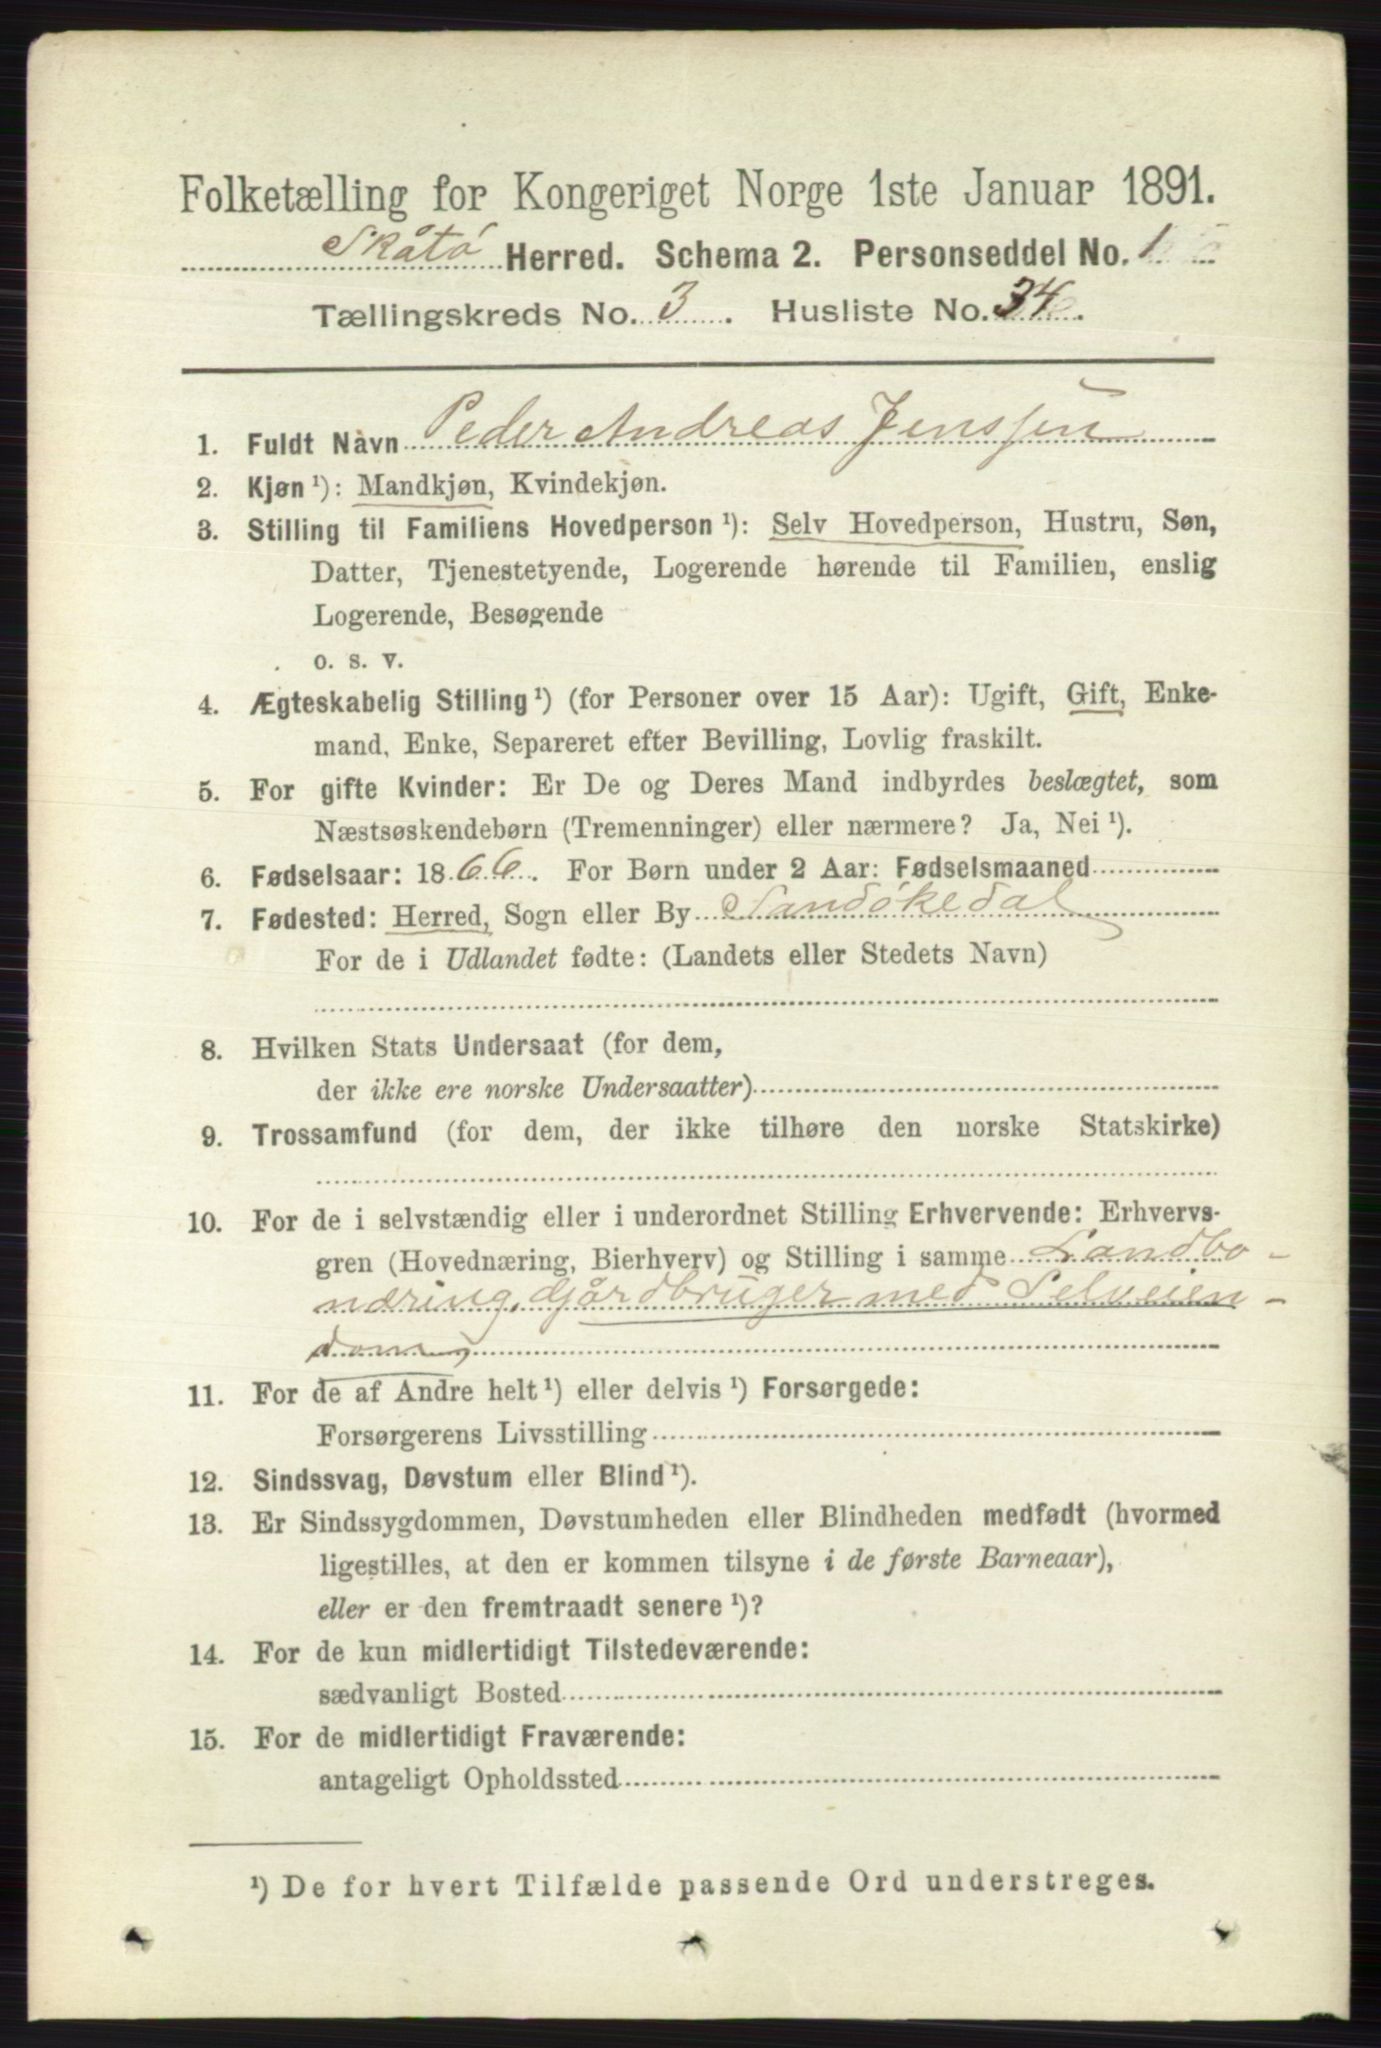 Folketælling for Kongeriget Norge 1ste Januar 1891.
Skåtø Herred. Schema 2. Personseddel No. 1
Tællingskreds No. 3. Husliste No. 34.
1. Fuldt Navn Peder Andreas Jenssen
2. Kjøn ¹): Mandkjøn, Kvindekjøn.
3. Stilling til Familiens Hovedperson ¹): Selv Hovedperson, Hustru, Søn,
Datter, Tjenestetyende, Logerende hørende til Familien, enslig
Logerende, Besøgende
o. s. v.
4. Ægteskabelig Stilling ¹) (for Personer over 15 Aar): Ugift, Gift, Enke-
mand, Enke, Separeret efter Bevilling, Lovlig fraskilt.
5. For gifte Kvinder: Er De og Deres Mand indbyrdes beslægtet, som
Næstsøskendebørn (Tremenninger) eller nærmere? Ja, Nei ¹).
6. Fødselsaar: 1866. For Børn under 2 Aar: Fødselsmaaned
7. Fødested: Herred, Sogn eller By Sandøkedal
For de i Udlandet fødte: (Landets eller Stedets Navn)
8. Hvilken Stats Undersaat (for dem,
der ikke ere norske Undersaatter)
9. Trossamfund (for dem, der ikke tilhøre den norske Statskirke)
10. For de i selvstændig eller i underordnet Stilling Erhvervende: Erhvervs-
gren (Hovednæring, Bierhverv) og Stilling i samme Landbo-
næring, Gjårdbruger med Selveien-
dom,
11. For de af Andre helt ¹) eller delvis ¹) Forsørgede:
Forsørgerens Livsstilling
12. Sindssvag, Døvstum eller Blind ¹).
13. Er Sindssygdommen, Døvstumheden eller Blindheden medfødt (hvormed
ligestilles, at den er kommen tilsyne i de første Barneaar),
eller er den fremtraadt senere ¹)?
14. For de kun midlertidigt Tilstedeværende:
sædvanligt Bosted
15. For de midlertidigt Fraværende:
antageligt Opholdssted
¹) De for hvert Tilfælde passende Ord understreges.